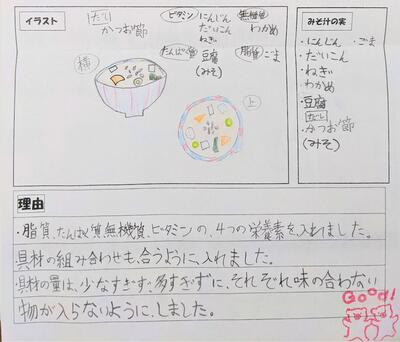 イラスト
だし
かつお節
ビタミン
にんじん
だいこん
ねぎ
無機質
わかめ
たんぱく質
豆腐
(みそ)
脂質
ごま
横
上
みそ汁の実
・にんじん ・ごま
・だいこん
・ねぎ
・わかめ
・豆腐
だし
・かつお節
(みそ)
理由
・脂質、たんぱく質、無機質、ビタミンの、4つの栄養素を、入れました。
具材の組み合わせも、合うように、入れました。
具材の量は、少なすぎず、多すぎずに、それぞれ味の合わない
物が入らないように、しました。
Good!